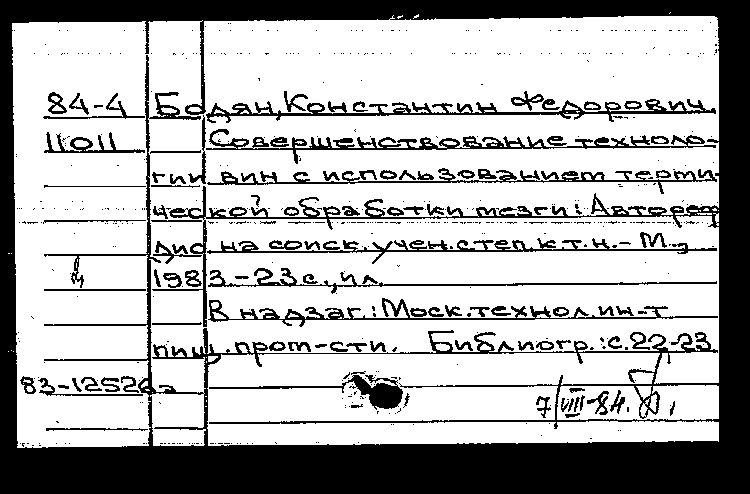 84-4 Бодян, Константин Федорович.
11011 Совершенствование техноло-
гии вин с использованием терми-
ческой обработки мезги: Автореф
дис. на соиск. учен. степ. к.т.н. - М.,
1983. - 23 с., ил.
В надзаг.: Моск. технол. ин-т
пищ. пром-сти. Библиогр.: с. 22-23
83-12526а
7/VIII-84.